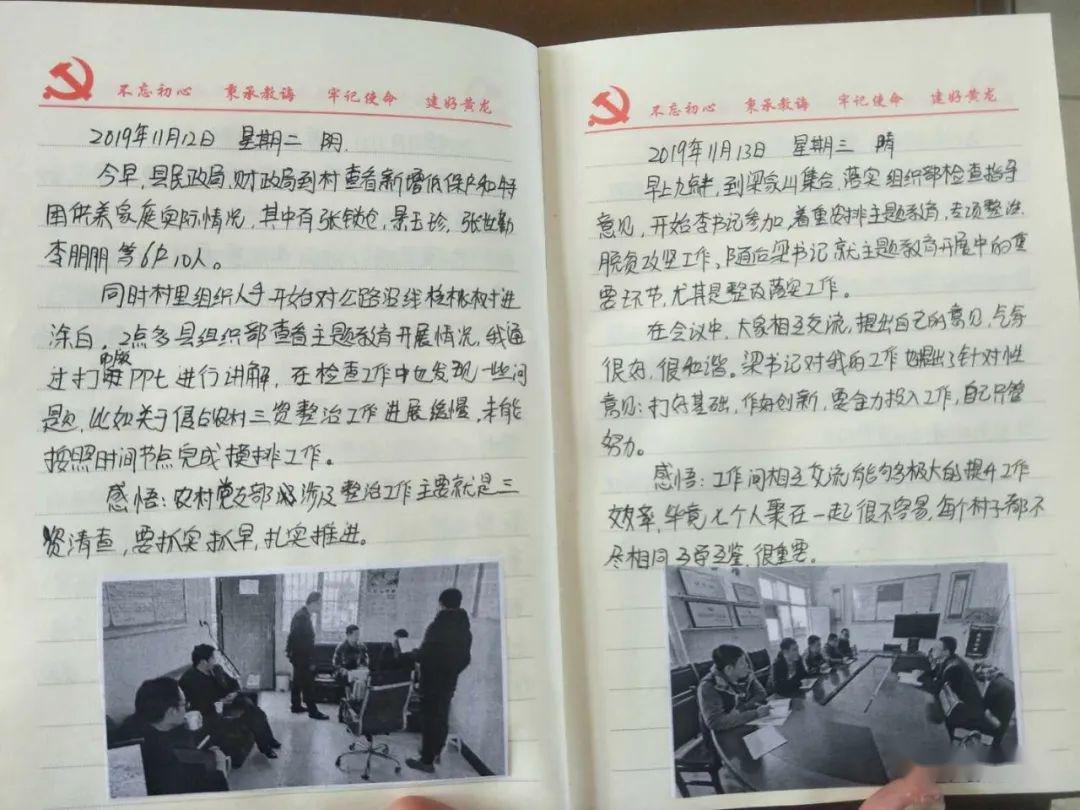 不忘初心 秉承教诲 牢记使命 建好黄龙
2019年11月12日 星期二 阴.
今早,县民政局,财政局到村查看新增低保户和特
困供养家庭实际情况,其中有张锁仓,景玉珍,张世勤
李朋朋等6户10人。
同时村里组织人手开始对公路沿线核桃树进
涂白,2点多县组织部查看主题教育开展情况,我通
过打印版PPt进行讲解,在检查工作中也发现一些问
题,比如关于侵占农村三资整治工作进展缓慢,未能
按照时间节点完成摸排工作。
感悟:农村党支部涉及整治工作主要就是三
资清查,要抓实抓早,扎实推进。
不忘初心 秉承教诲 牢记使命 建好黄龙
2019年11月13日 星期三 晴
早上九点半,到梁家山集合,落实组织部检查指导
意见,开始李书记参加,着重安排主题教育,专项整治,
脱贫攻坚工作、随后梁书记就主题教育开展中的重
要环节,尤其是整改落实工作。
在会议中,大家相互交流,提出自己的意见,气氛
很好,很和谐。梁书记对我的工作也提出了针对性
意见:打好基础,作好创新,要全力投入工作,自己只管
努力。
感悟:工作间相互交流,能够极大的提升工作
效率,毕竟七个人聚在一起很不容易,每个村子都不
尽相同,互学互鉴,很重要。